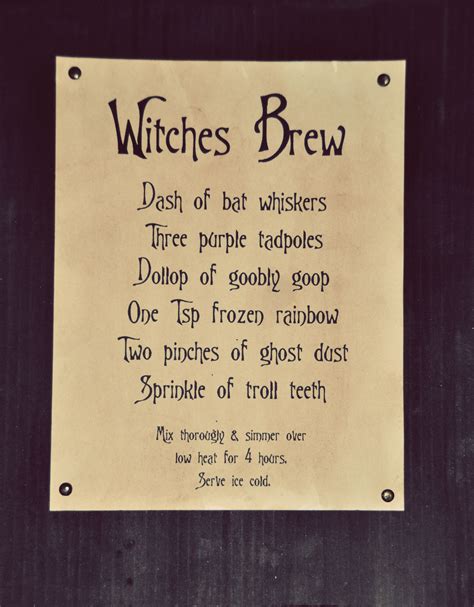 Witches Brew
Dash of bat whiskers
Three purple tadpoles
Dollop of goobly goop
One Tsp frozen rainbow
Two pinches of ghost dust
Sprinkle of troll teeth
Mix thorougly & simmer over
low heat for 4 hours.
Serve ice cold.